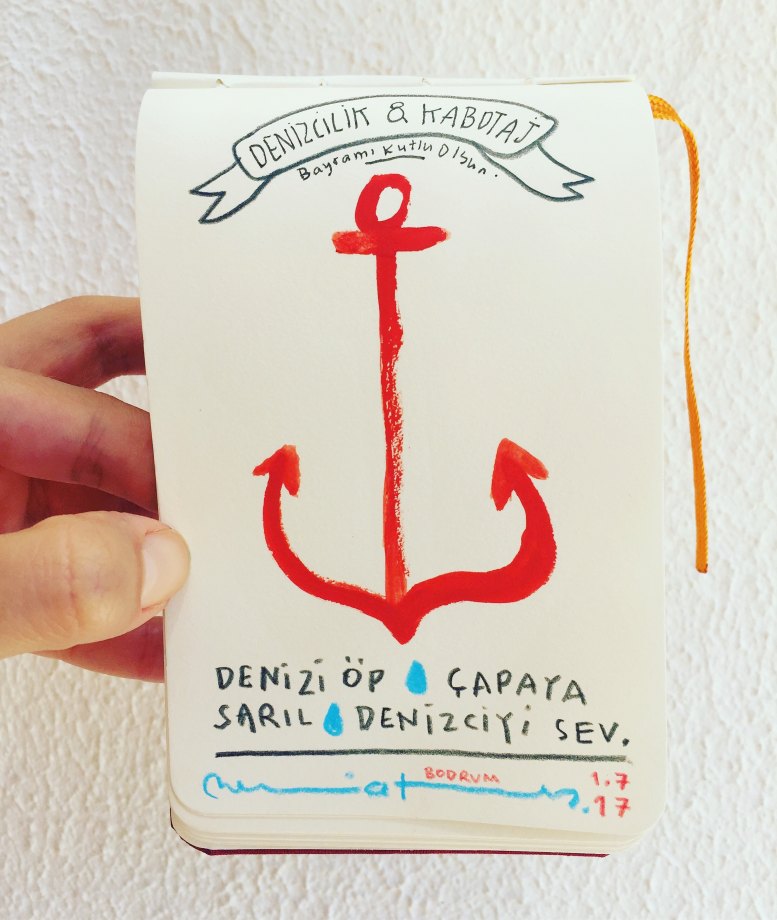 DENİZCİLİK & KABOTAJ
Bayramı Kutlu Olsun.
DENİZİ ÖP ÇAPAYA
SARIL DENİZCİYİ SEV.
BODRUM 1.7
.17